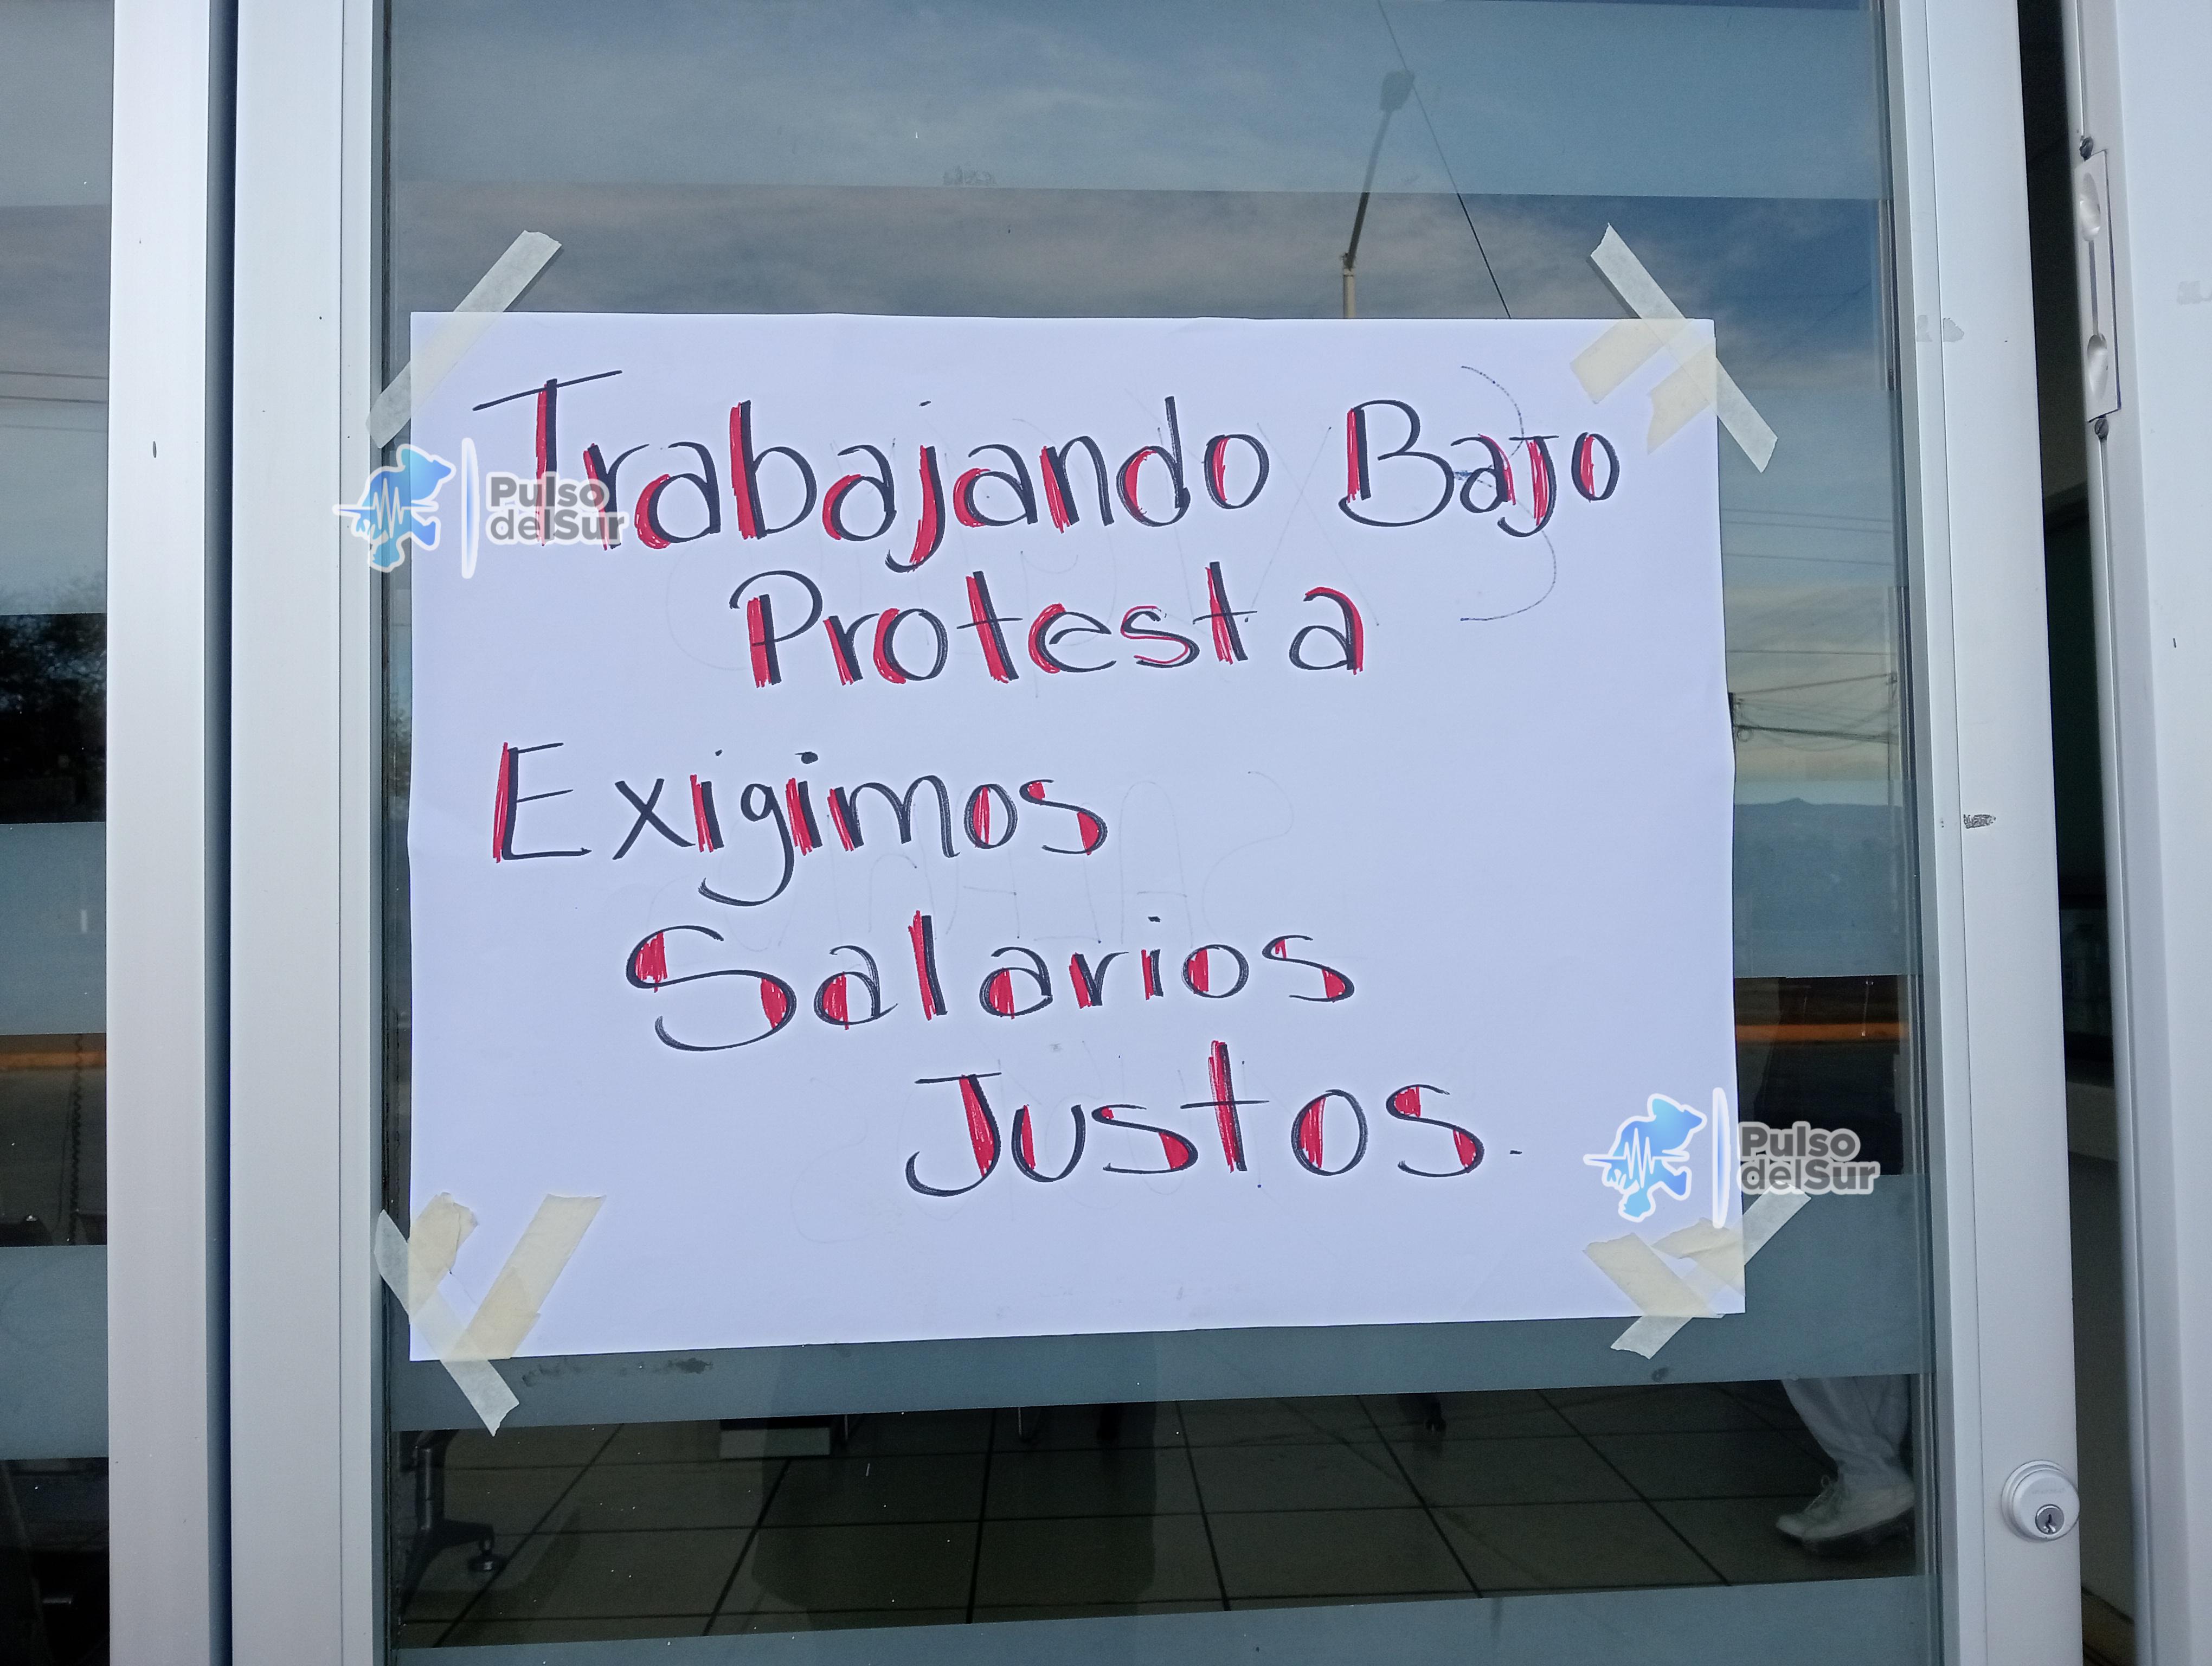 Trabajando Bajo
Protesta
Exigimos
Salarios
Justos.
Pulso
delSur
Pulso
delSur